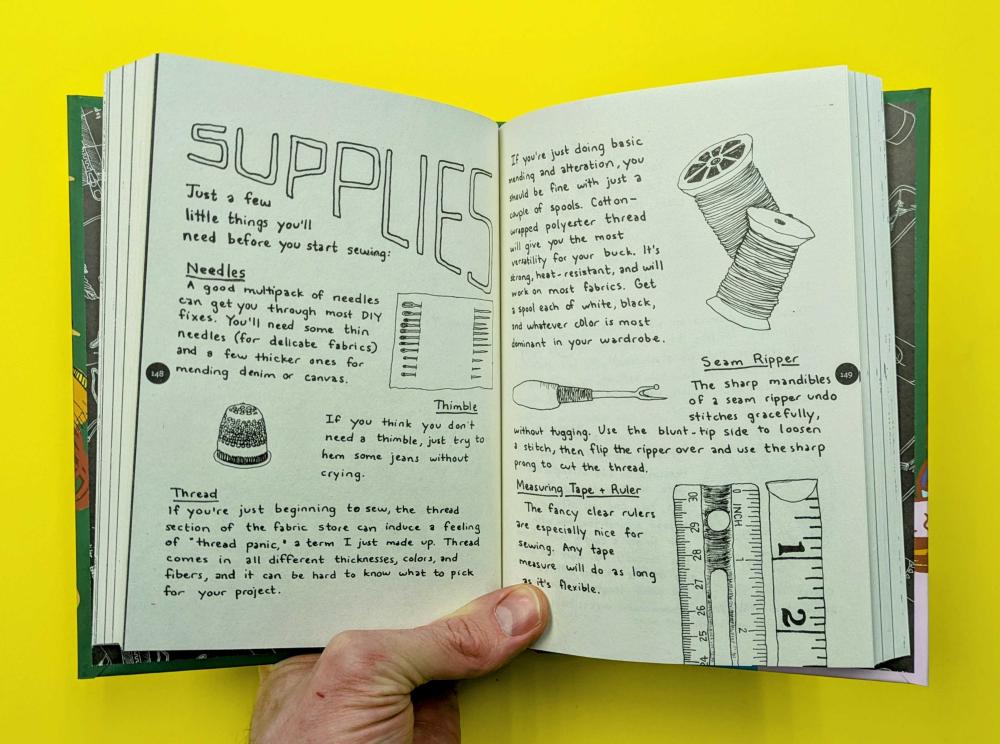 SUPPLIES
Just a few
little things you'll
need before you start sewing:
Needles
A good multipack of needles
can get you through most DIY
fixes. You'll need some thin
needles (for delicate fabrics)
and a few thicker ones for
mending denim or canvas.
148
Thimble
If you think you don't
need a thimble, just try to
hem some jeans without
crying.
Thread
If you're just beginning to sew, the thread
section of the fabric store can induce a feeling
of "thread panic," a term I just made up. Thread
comes in all different thicknesses, colors, and
fibers, and it can be hard to know what to pick
for your project.
If you're just doing basic
mending and alteration, you
should be fine with just a
couple of spools. Cotton-
wrapped polyester thread
will give you the most
versatility for your buck. It's
strong, heat-resistant, and will
work on most fabrics. Get
a spool each of white, black,
and whatever color is most
dominant in your wardrobe.
Seam Ripper
The sharp mandibles
of a seam ripper undo
stitches gracefully,
without tugging. Use the blunt-tip side to loosen
a stitch, then flip the ripper over and use the sharp
prong to cut the thread.
149
Measuring Tape + Ruler
The fancy clear rulers
are especially nice for
sewing. Any tape
measure will do as long
as it's flexible.
30
29
28
27
26
25
24
0 INCH
1
2
1
2